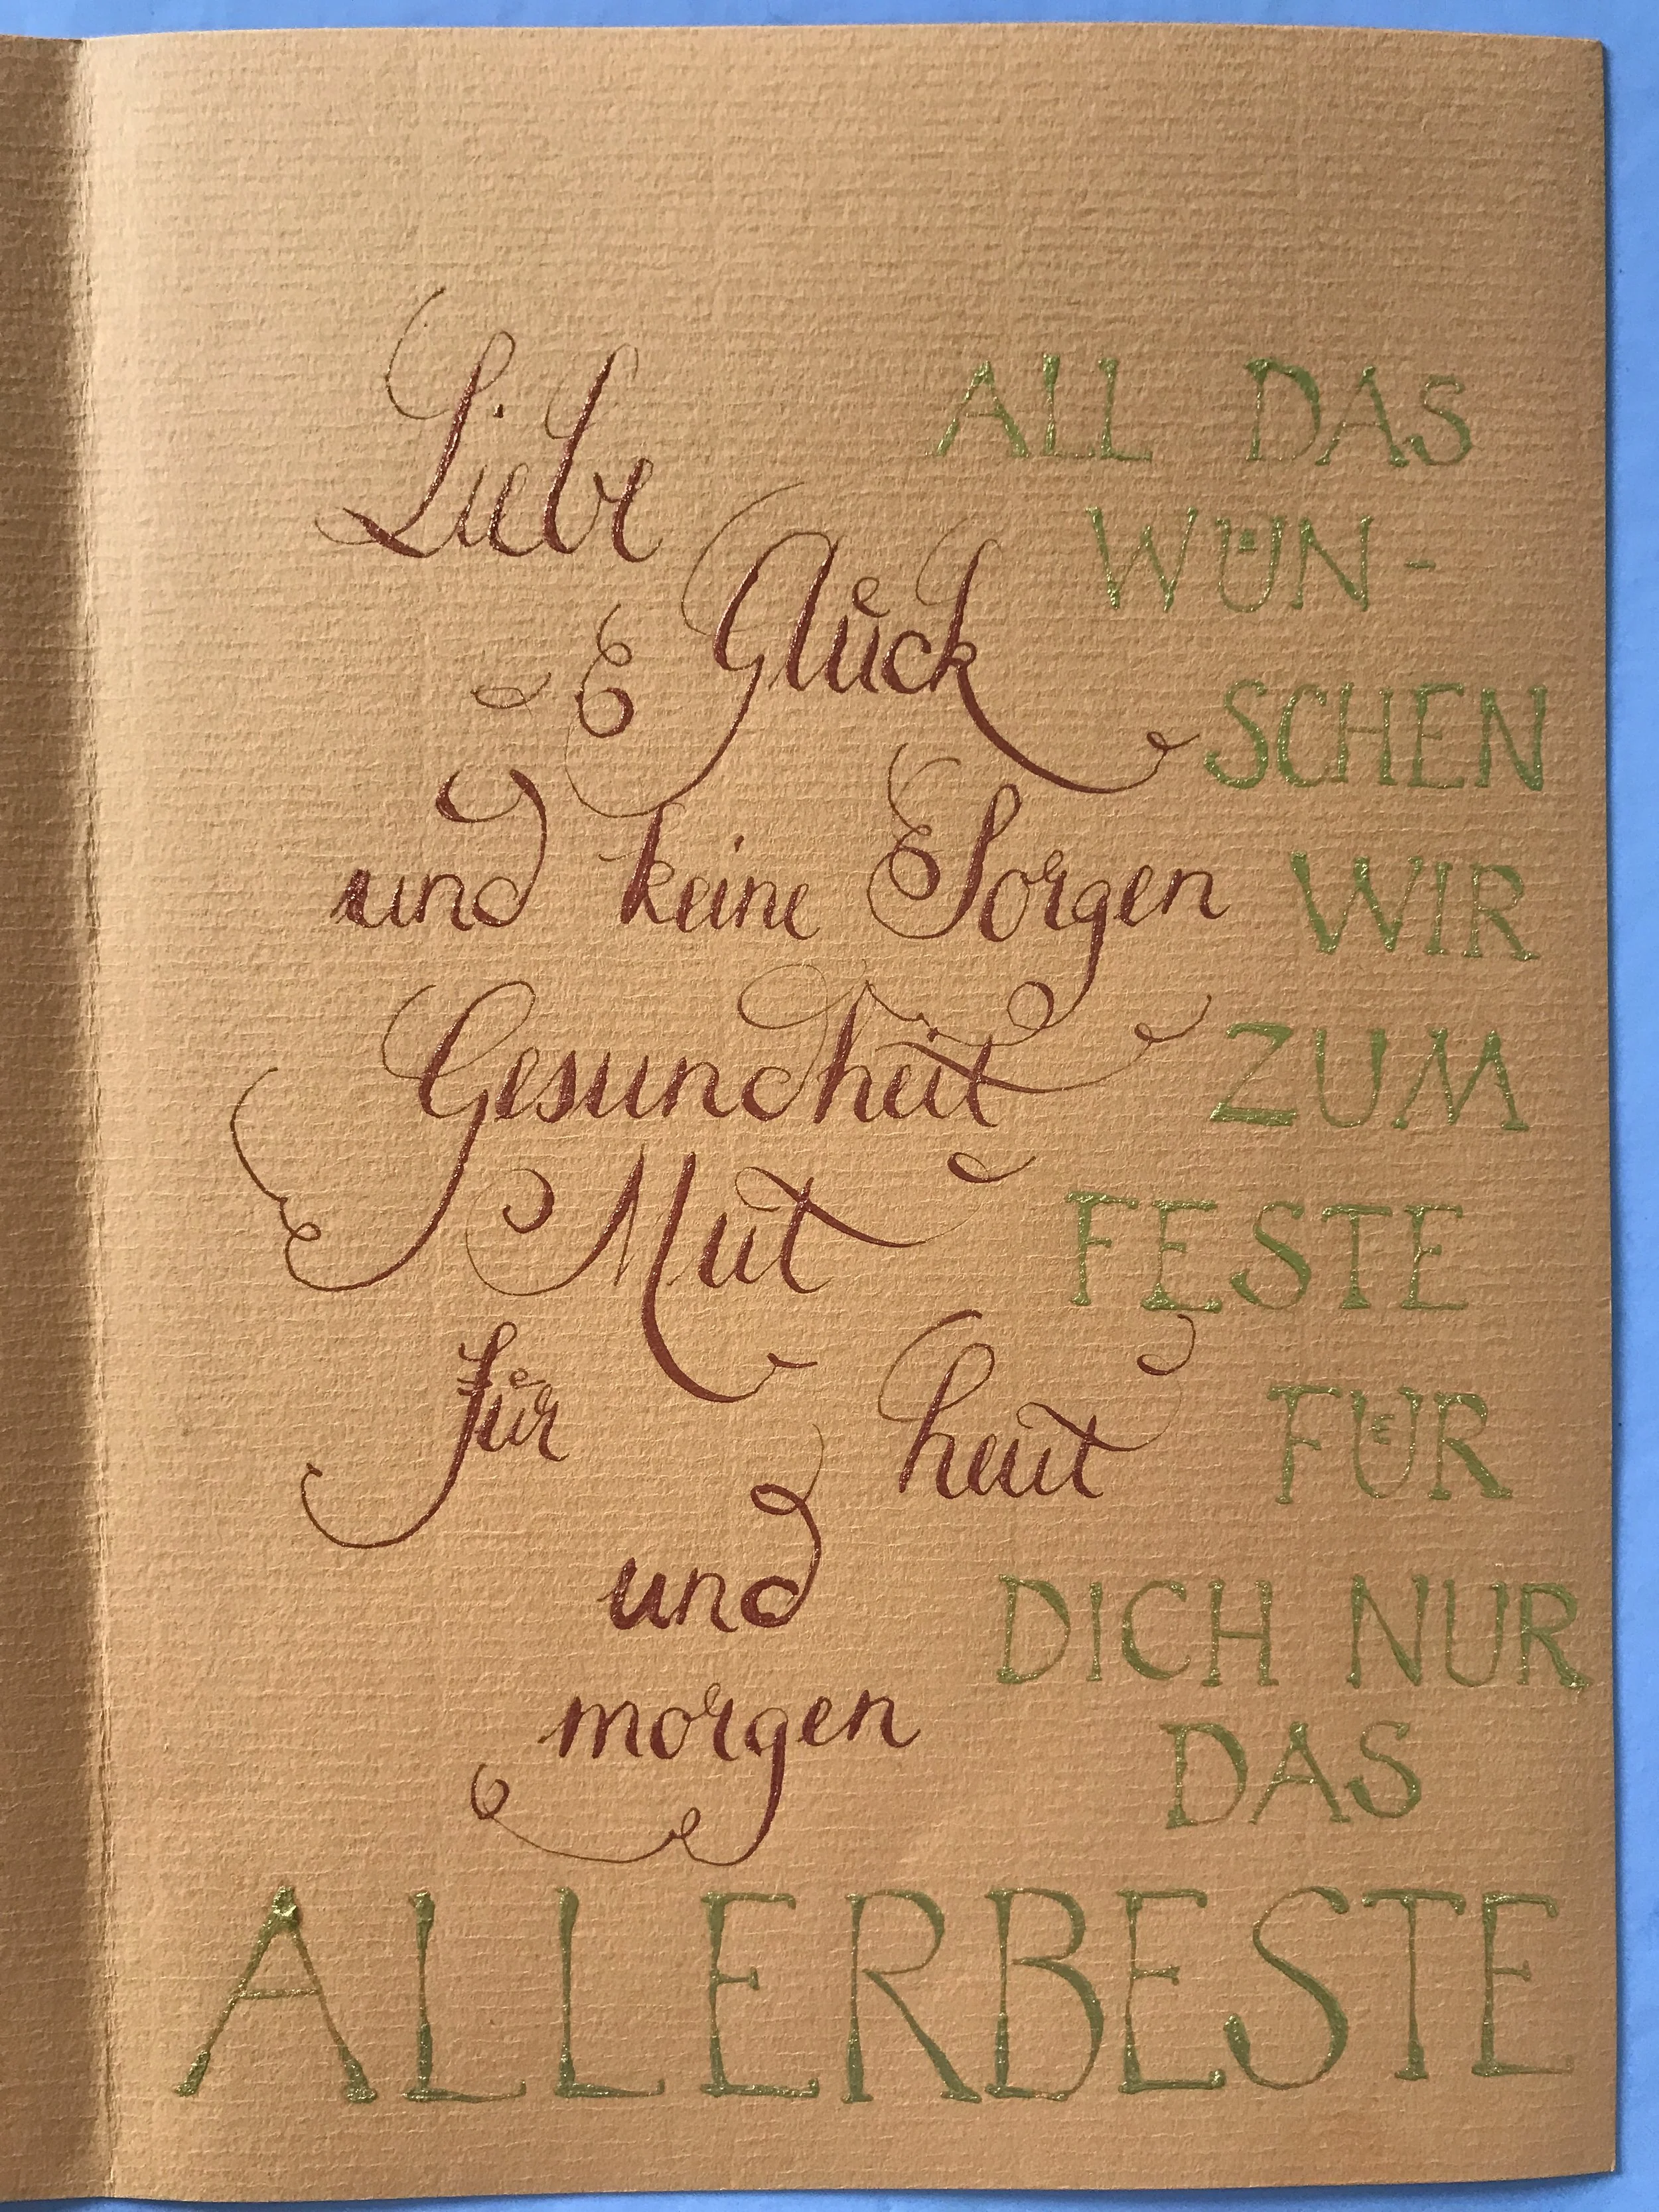 Liebe
Glück
und keine Sorgen
Gesundheit
Mut
für heut
und
morgen
ALL DAS
WÜN-
SCHEN
WIR
ZUM
FESTE
FÜR
DICH NUR
DAS
ALLERBESTE